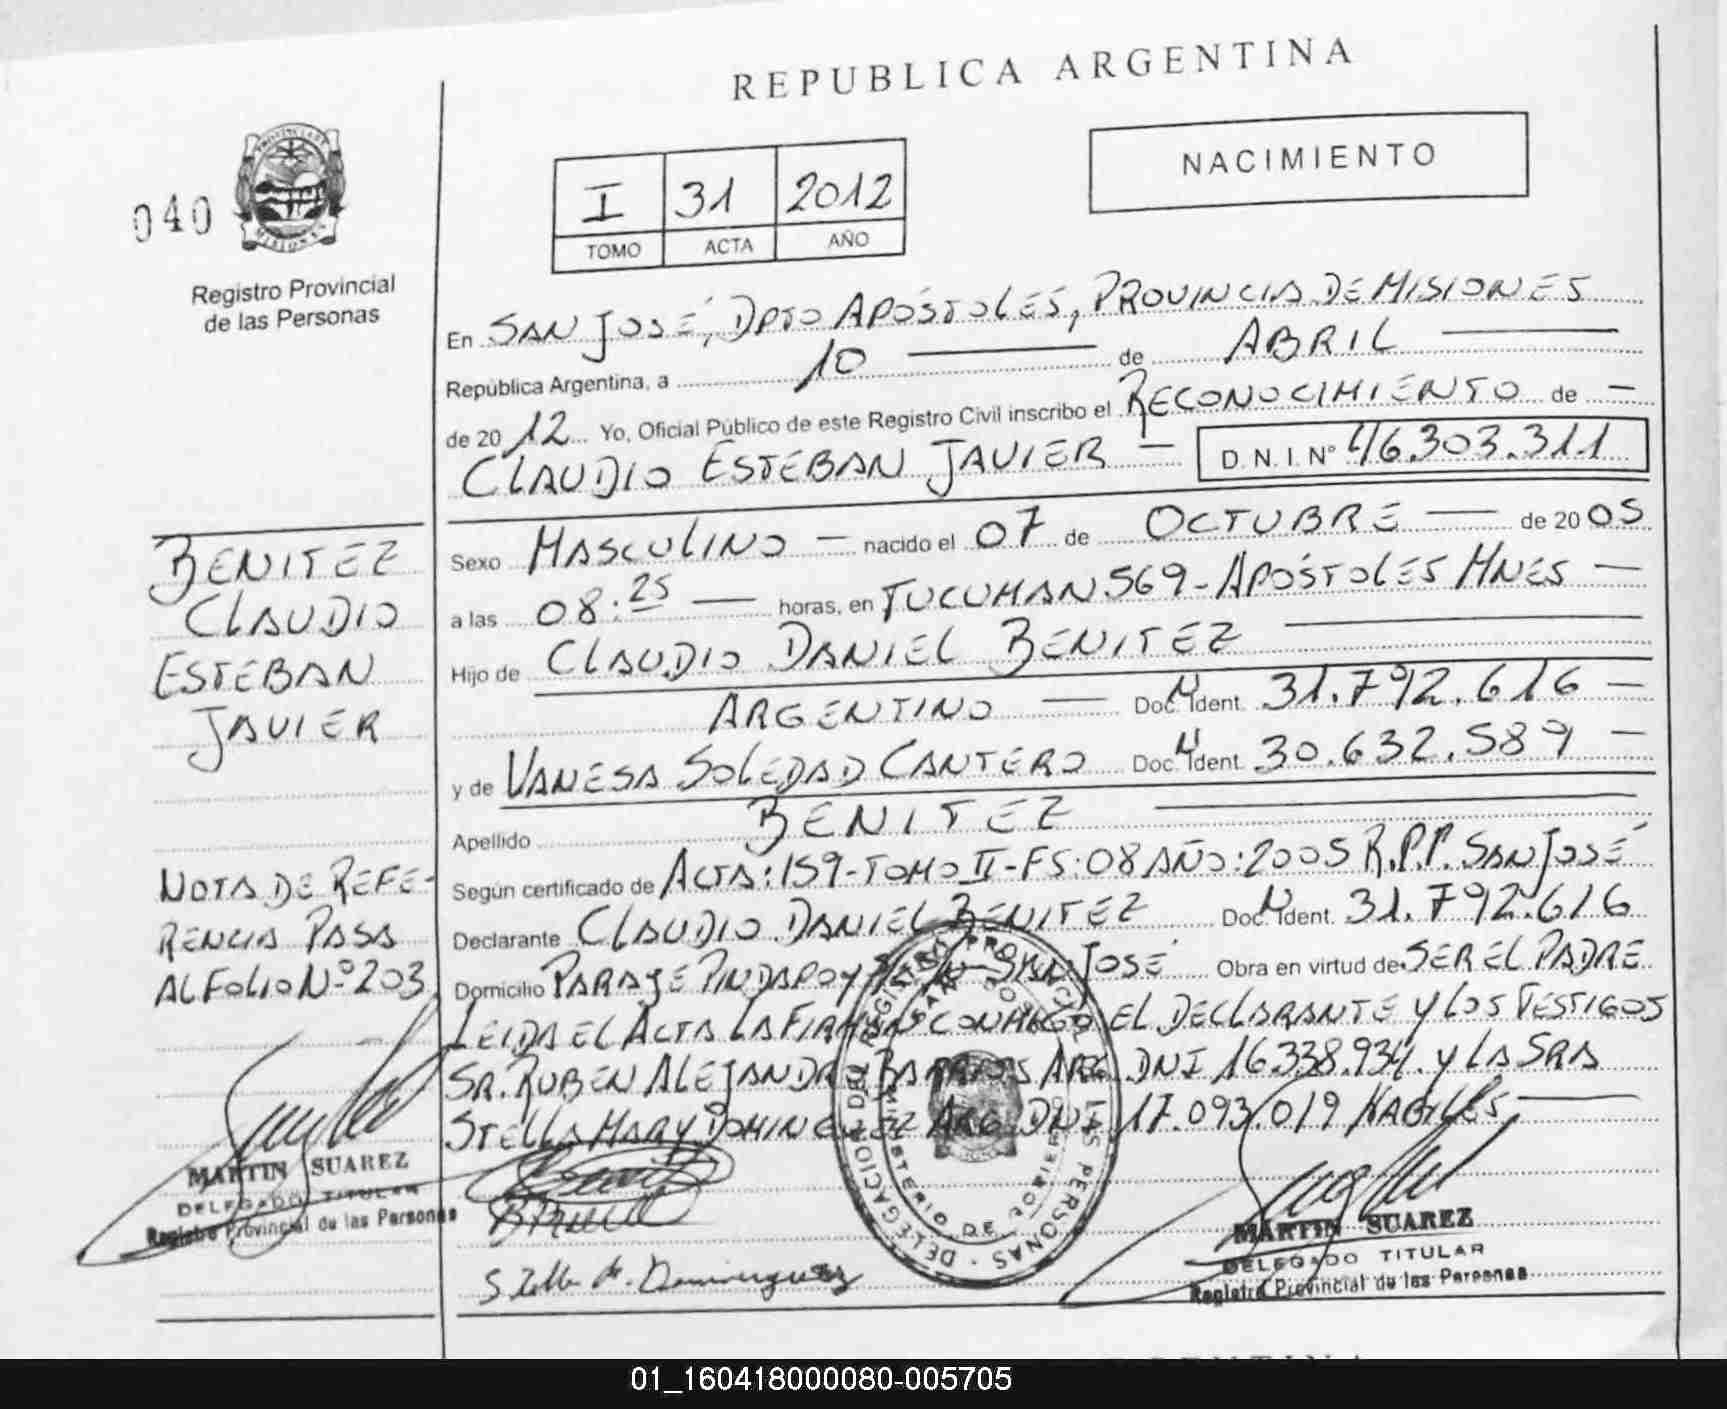 REPUBLICA ARGENTINA
NACIMIENTO
040
I 31 2012
TOMO ACTA AÑO
Registro Provincial
de las Personas
En SAN JOSÉ, DPTO APÓSTOLES, PROVINCIA DE MISIONES
República Argentina, a 10 de ABRIL
de 2012 Yo, Oficial Público de este Registro Civil inscribo el RECONOCIMIENTO de
CLAUDIO ESTEBAN JAVIER D.N.I. N° 46.303.311
Sexo MASCULINO nacido el 07 de OCTUBRE de 2005
a las 08:25 horas, en TUCUMAN 569-APÓSTOLES MNES
Hijo de CLAUDIO DANIEL BENITEZ
ARGENTINO Doc. N Ident. 31.792.616
y de VANESA SOLEDAD CANTERO Doc. N Ident. 30.632.589
Apellido BENITEZ
Según certificado de ACTA:159-TOMO II-FS:08 AÑO:2005 R.P.P. SAN JOSÉ
Declarante CLAUDIO DANIEL BENITEZ Doc. N Ident. 31.792.616
Domicilio PARAJE PINDAPOY SAN JOSÉ Obra en virtud de SER EL PADRE
LEIDA EL ACTA LA FIRMAN CONMIGO EL DECLARANTE Y LOS TESTIGOS
SR. RUBEN ALEJANDRO BARRIOS ARG. DNI 16.338.934. Y LA SRA
STELLA MARY DOMINGUEZ ARG. DNI 17.093.019 HABILES
BENITEZ
CLAUDIO
ESTEBAN
JAVIER
NOTA DE REFE-
RENCIA PASA
AL FOLIO Nº 203
MARTIN SUAREZ
DELEGADO TITULAR
Registro Provincial de las Personas
DELEGACION DEL REGISTRO PROVINCIAL DE LAS PERSONAS
SAN JOSE
MINISTERIO DE GOBIERNO
MARTIN SUAREZ
DELEGADO TITULAR
Registro Provincial de las Personas
01_160418000080-005705